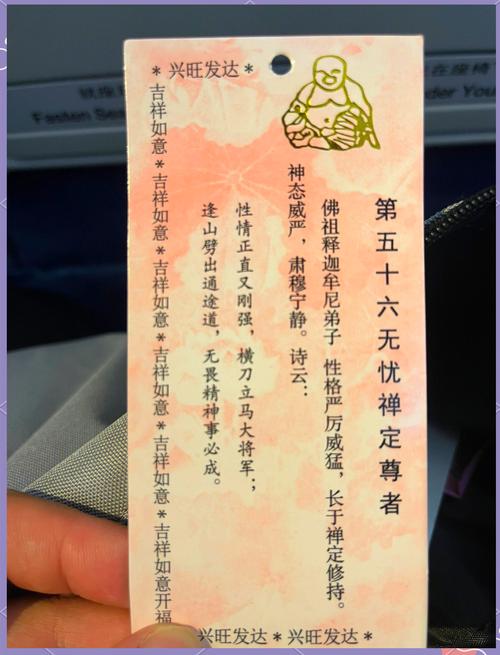 * 兴旺发达 *
第五十六无忧禅定尊者
佛祖释迦牟尼弟子 性格严厉威猛，长于禅定修持。
神态威严，肃穆宁静。诗云：
性情正直又刚强，横刀立马大将军；
逢山劈出通途道，无畏精神事必成。
吉祥如意*吉祥如意*吉祥如意*吉祥如意*吉祥如意*吉祥如意开福
兴旺发达*兴旺发达*
在座椅
Fasten Sea
der You